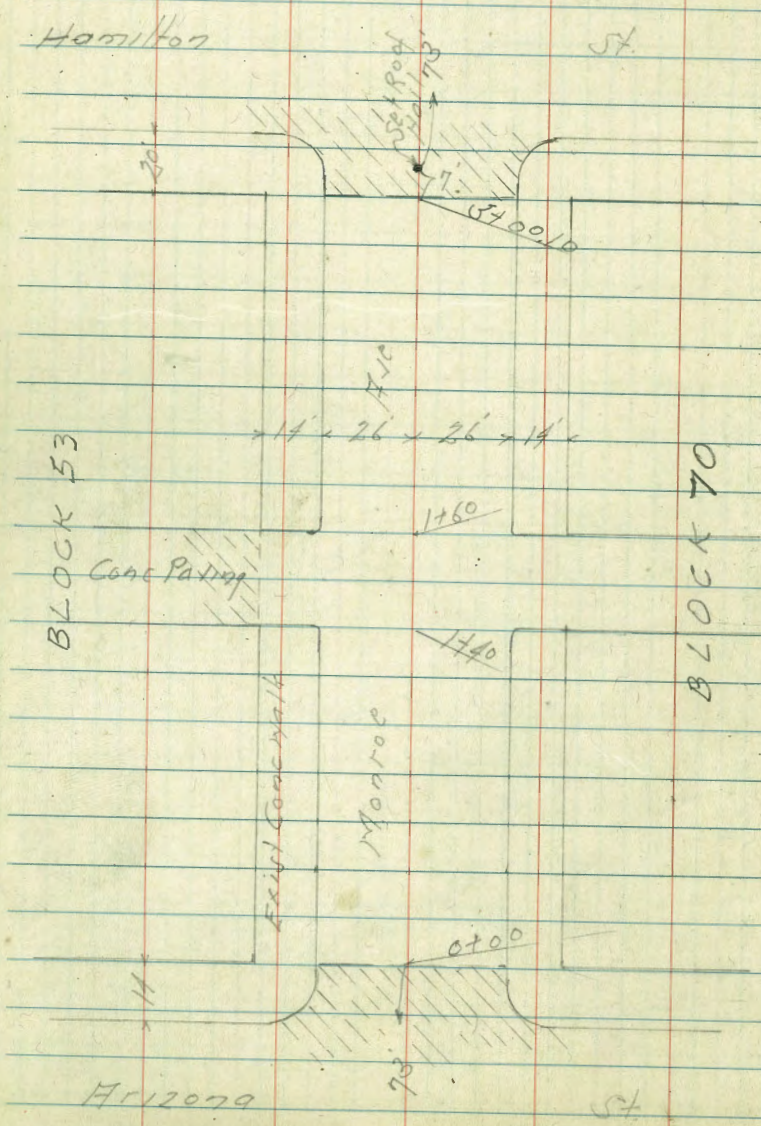 Hamilton St.
Set Road
Nail 73'
20'
7'
3+00.10
Ave
14' 26' 26' 14'
BLOCK 53
BLOCK 70
1+60
Conc Paving
1+40
Exist Conc walk
Monroe
0+00
14
73'
Arizona St.